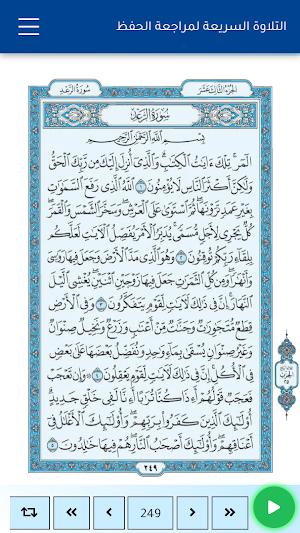 التلاوة السريعة لمراجعة الحفظ
سورة الرعد
الجزء الثالث عشر
سُورَةُ الرَّعْدِ
بِسْمِ اللَّهِ الرَّحْمَٰنِ الرَّحِيمِ
الٓمٓر ۚ تِلْكَ ءَايَٰتُ الْكِتَٰبِ ۗ وَالَّذِىٓ أُنزِلَ إِلَيْكَ مِن رَّبِّكَ الْحَقُّ
وَلَٰكِنَّ أَكْثَرَ النَّاسِ لَا يُؤْمِنُونَ ١ اللَّهُ الَّذِى رَفَعَ السَّمَٰوَٰتِ
بِغَيْرِ عَمَدٍ تَرَوْنَهَا ۖ ثُمَّ اسْتَوَىٰ عَلَى الْعَرْشِ ۖ وَسَخَّرَ الشَّمْسَ وَالْقَمَرَ ۖ
كُلٌّ يَجْرِى لِأَجَلٍ مُّسَمًّى ۚ يُدَبِّرُ الْأَمْرَ يُفَصِّلُ الْءَايَٰتِ لَعَلَّكُم
بِلِقَآءِ رَبِّكُمْ تُوقِنُونَ ٢ وَهُوَ الَّذِى مَدَّ الْأَرْضَ وَجَعَلَ فِيهَا رَوَٰسِىَ
وَأَنْهَٰرًا ۖ وَمِن كُلِّ الثَّمَرَٰتِ جَعَلَ فِيهَا زَوْجَيْنِ اثْنَيْنِ ۖ يُغْشِى الَّيْلَ
النَّهَارَ ۚ إِنَّ فِى ذَٰلِكَ لَءَايَٰتٍ لِّقَوْمٍ يَتَفَكَّرُونَ ٣ وَفِى الْأَرْضِ
قِطَعٌ مُّتَجَٰوِرَٰتٌ وَجَنَّٰتٌ مِّنْ أَعْنَٰبٍ وَزَرْعٌ وَنَخِيلٌ صِنْوَانٌ
وَغَيْرُ صِنْوَانٍ يُسْقَىٰ بِمَآءٍ وَٰحِدٍ وَنُفَضِّلُ بَعْضَهَا عَلَىٰ بَعْضٍ
فِى الْأُكُلِ ۚ إِنَّ فِى ذَٰلِكَ لَءَايَٰتٍ لِّقَوْمٍ يَعْقِلُونَ ٤ ۞ وَإِن تَعْجَبْ
فَعَجَبٌ قَوْلُهُمْ أَءِذَا كُنَّا تُرَٰبًا أَءِنَّا لَفِى خَلْقٍ جَدِيدٍ ۗ
أُو۟لَٰٓئِكَ الَّذِينَ كَفَرُوا۟ بِرَبِّهِمْ ۖ وَأُو۟لَٰٓئِكَ الْأَغْلَٰلُ فِىٓ
أَعْنَاقِهِمْ ۖ وَأُو۟لَٰٓئِكَ أَصْحَٰبُ النَّارِ ۖ هُمْ فِيهَا خَٰلِدُونَ ٥
٢٤٩
249